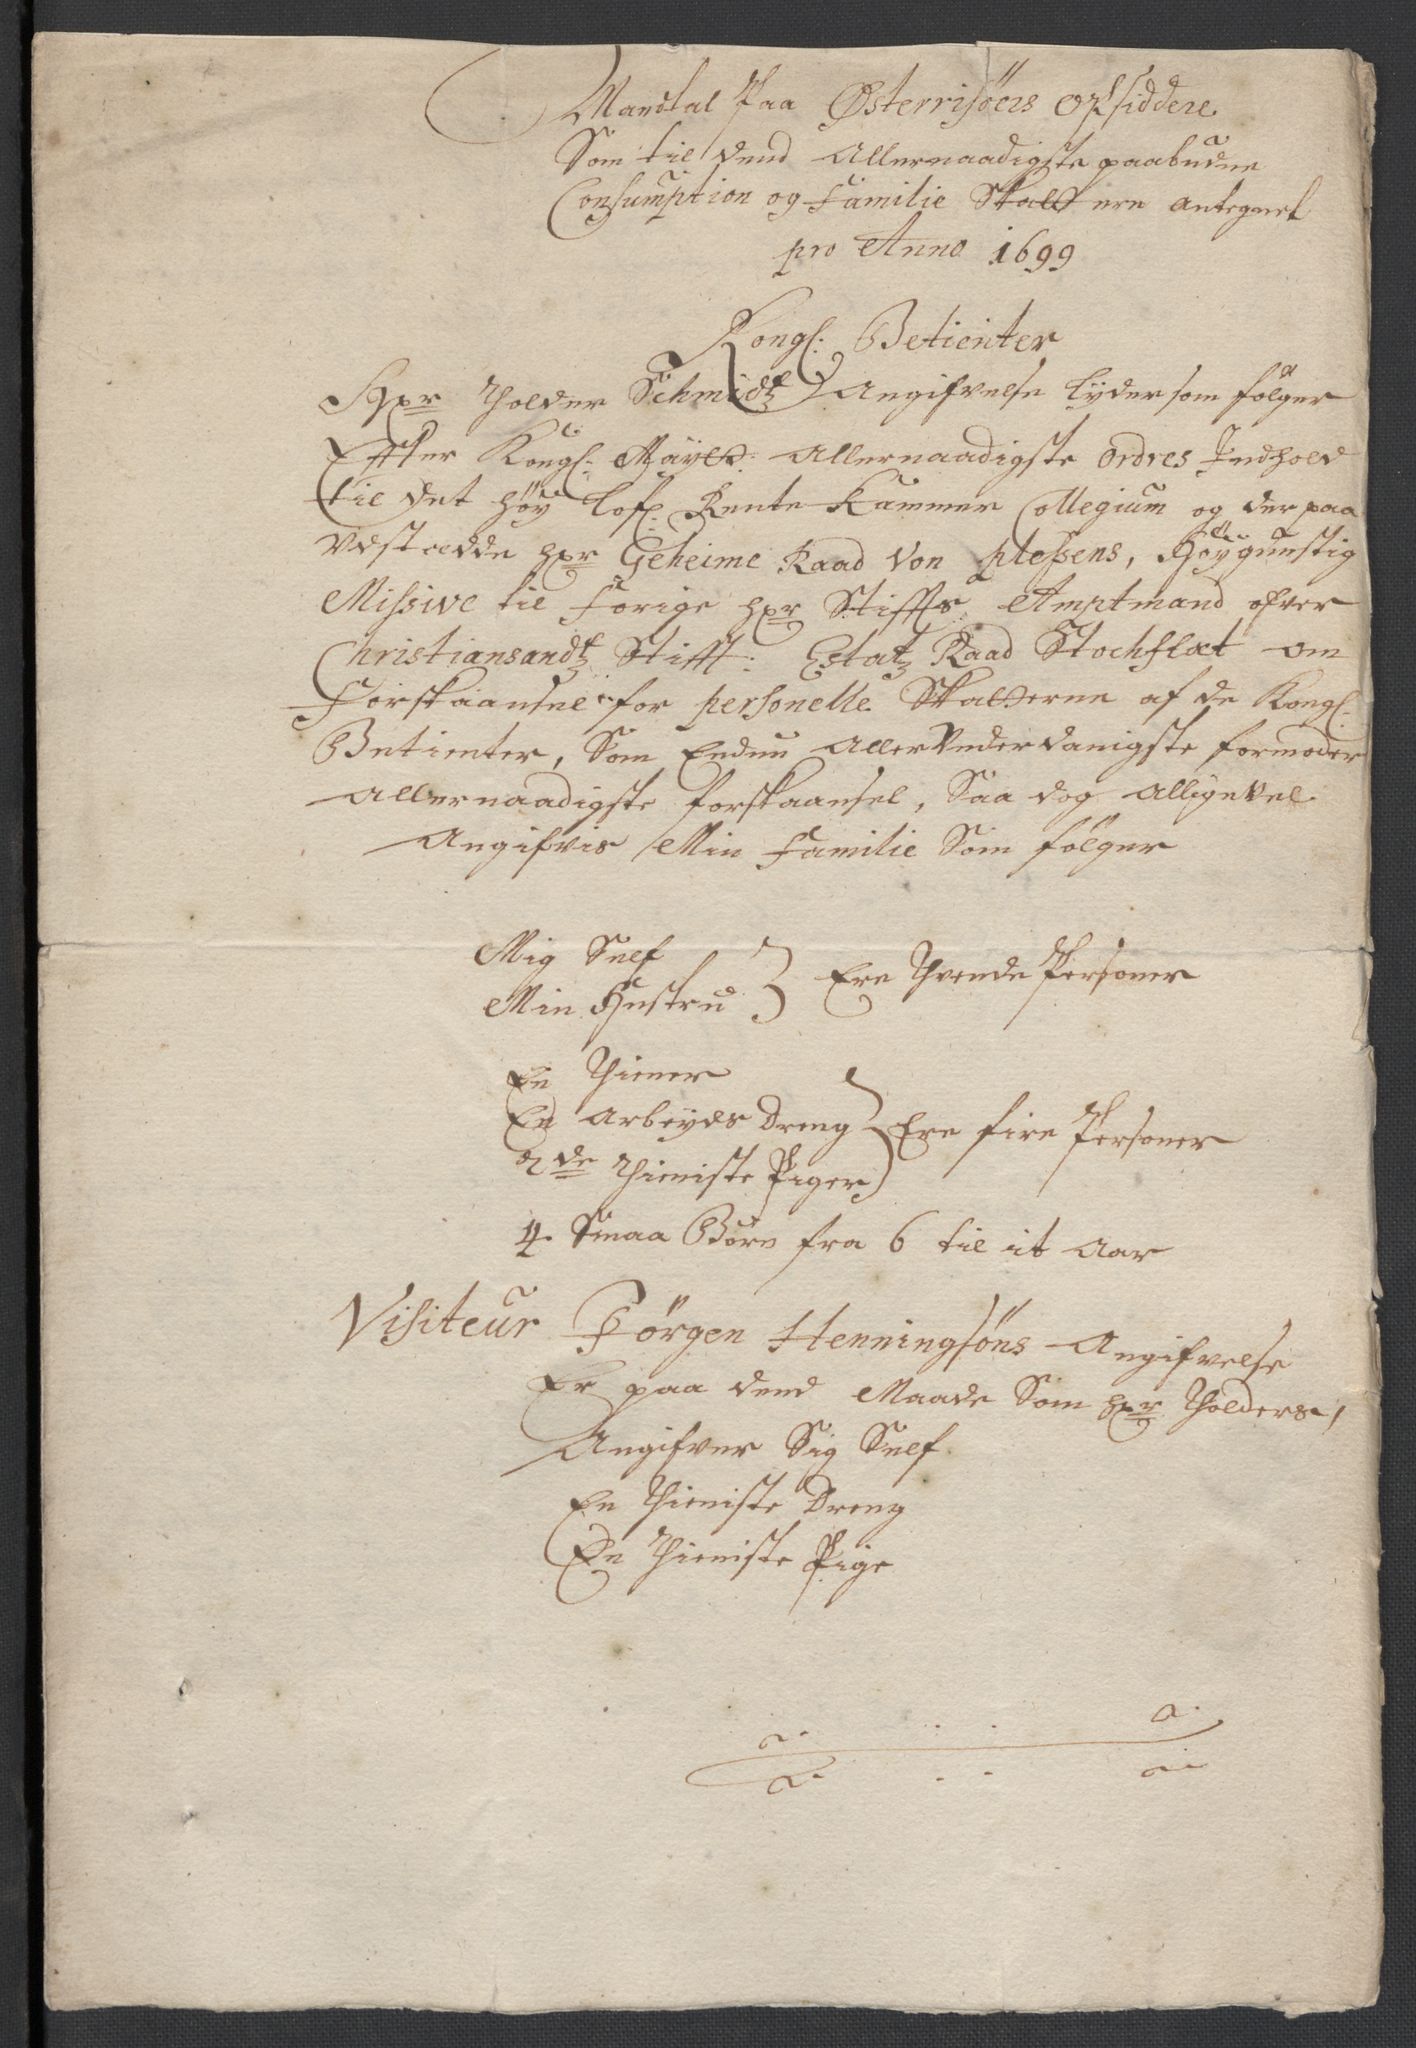 Mandtal Paa Østerrisöers Opsiddere
Som til dend Allernaadigste paabudne
Consumption og Familie Skatt ere antegnet
pro Anno 1699
Kongl: Betienter
Hr Tholder Schmidtz Angifvelse lyder som fölger
Efter Kongl: Mayts: Allernaadigste Ordres Indhold
til det höy lofl: Rente Kammer Collegium og der paa
Udstædde hr Geheime Raad Von Plessens, Höygunstig
Missive til forige hr Stiffts Amptmand ofver
Christiansandtz Stifft: Estatz Raad Stochflet om
Forskaansel for personelle Skatterne af de Kongl:
Betienter, Som Endnu Allerunderdanigste formoder
Allernaadigste forskaansel, Saa dog Alligevel
Angifvis Min Familie Som fölger
Mig Self
Min Hustru } Ere Thvende Personer
En Thiener
En Arbeyds Dreng } Ere fire Personer
2de Thieniste Piger
4 Smaa Börn fra 6 til 1t Aar
Visiteur Jörgen Henningsöns Angifvelse
Er paa dend Maade Som hr Tholders,
Angifver Sig Self
En Thieniste Dreng
En Thieniste Pige